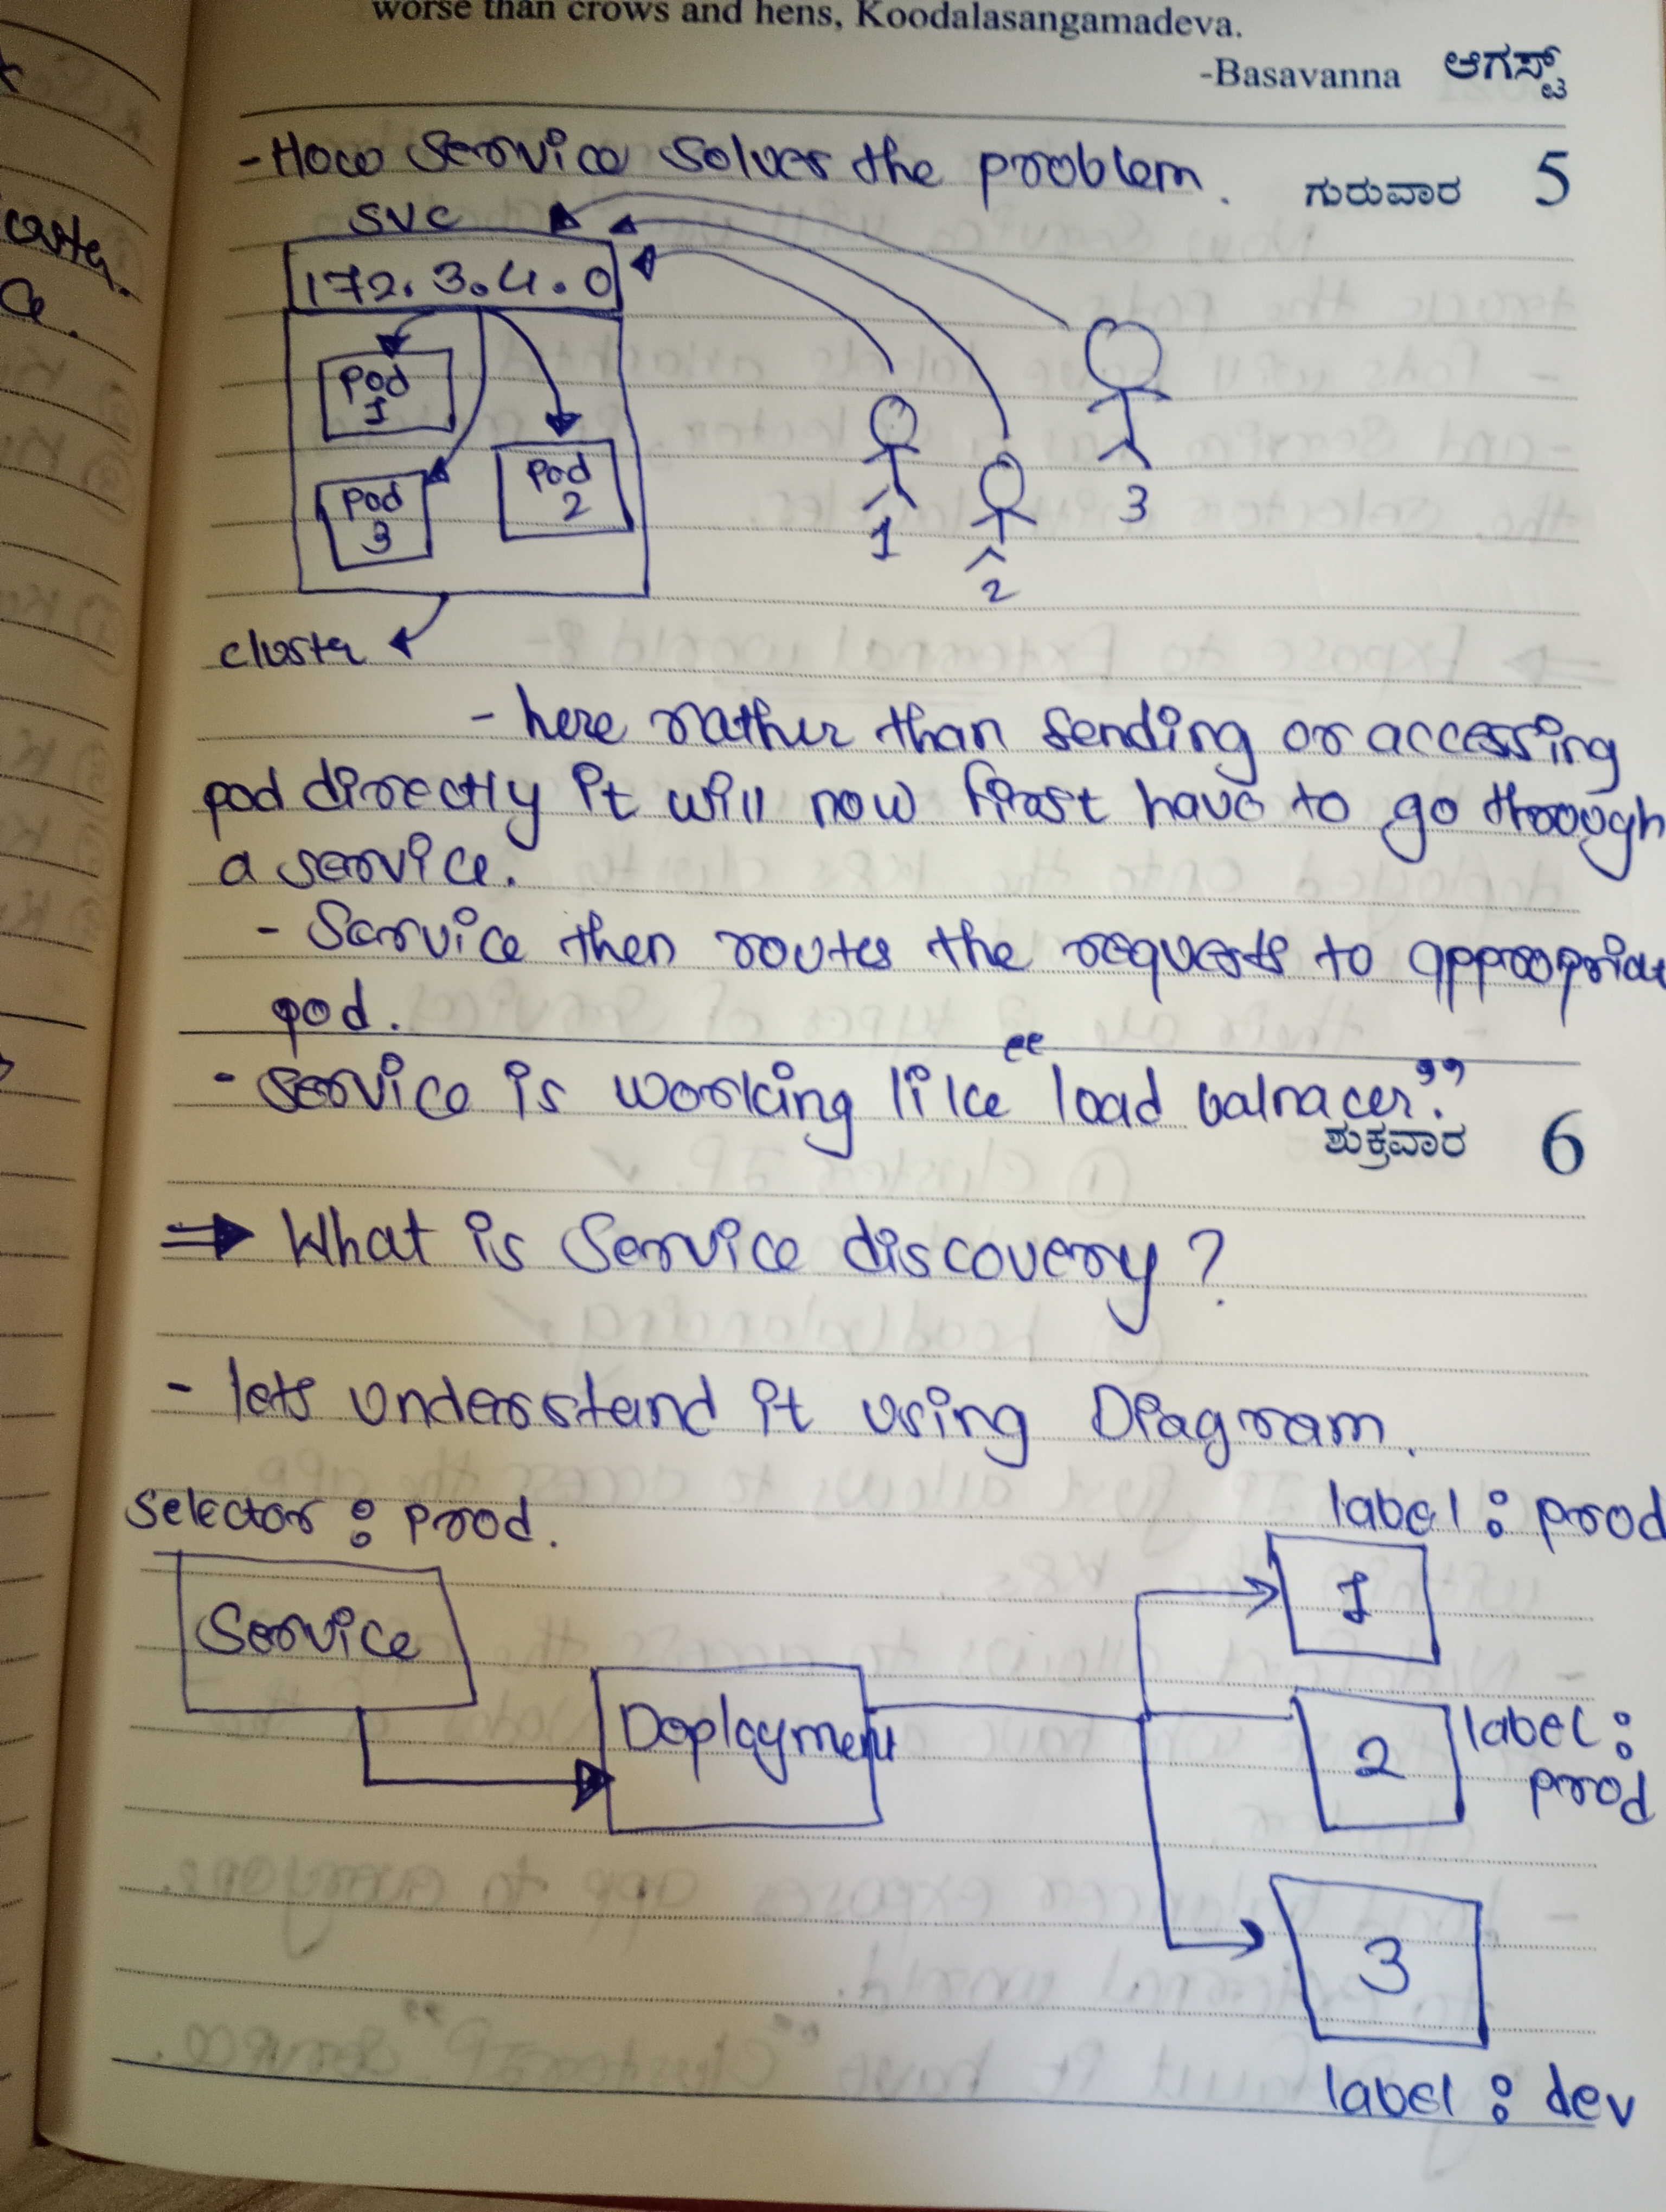 worse than crows and hens, Koodalasangamadeva.
-Basavanna ಆಗಸ್ಟ್
- How Service solves the problem.
ಗುರುವಾರ 5
SVC
172.3.4.0
Pod
1
Pod
2
Pod
3
1
2
3
cluster
- here rather than sending or accessing
pod directly it will now first have to go through
a service.
- Service then routes the requests to
pod.
- Service is working like "load balnacer."
ಶುಕ್ರವಾರ 6
⇒ What is Service discovery?
- lets understand it using Diagram.
Selector : prod.
label : prod
1
Service
Deployment
2
label :
prod
3
label : dev